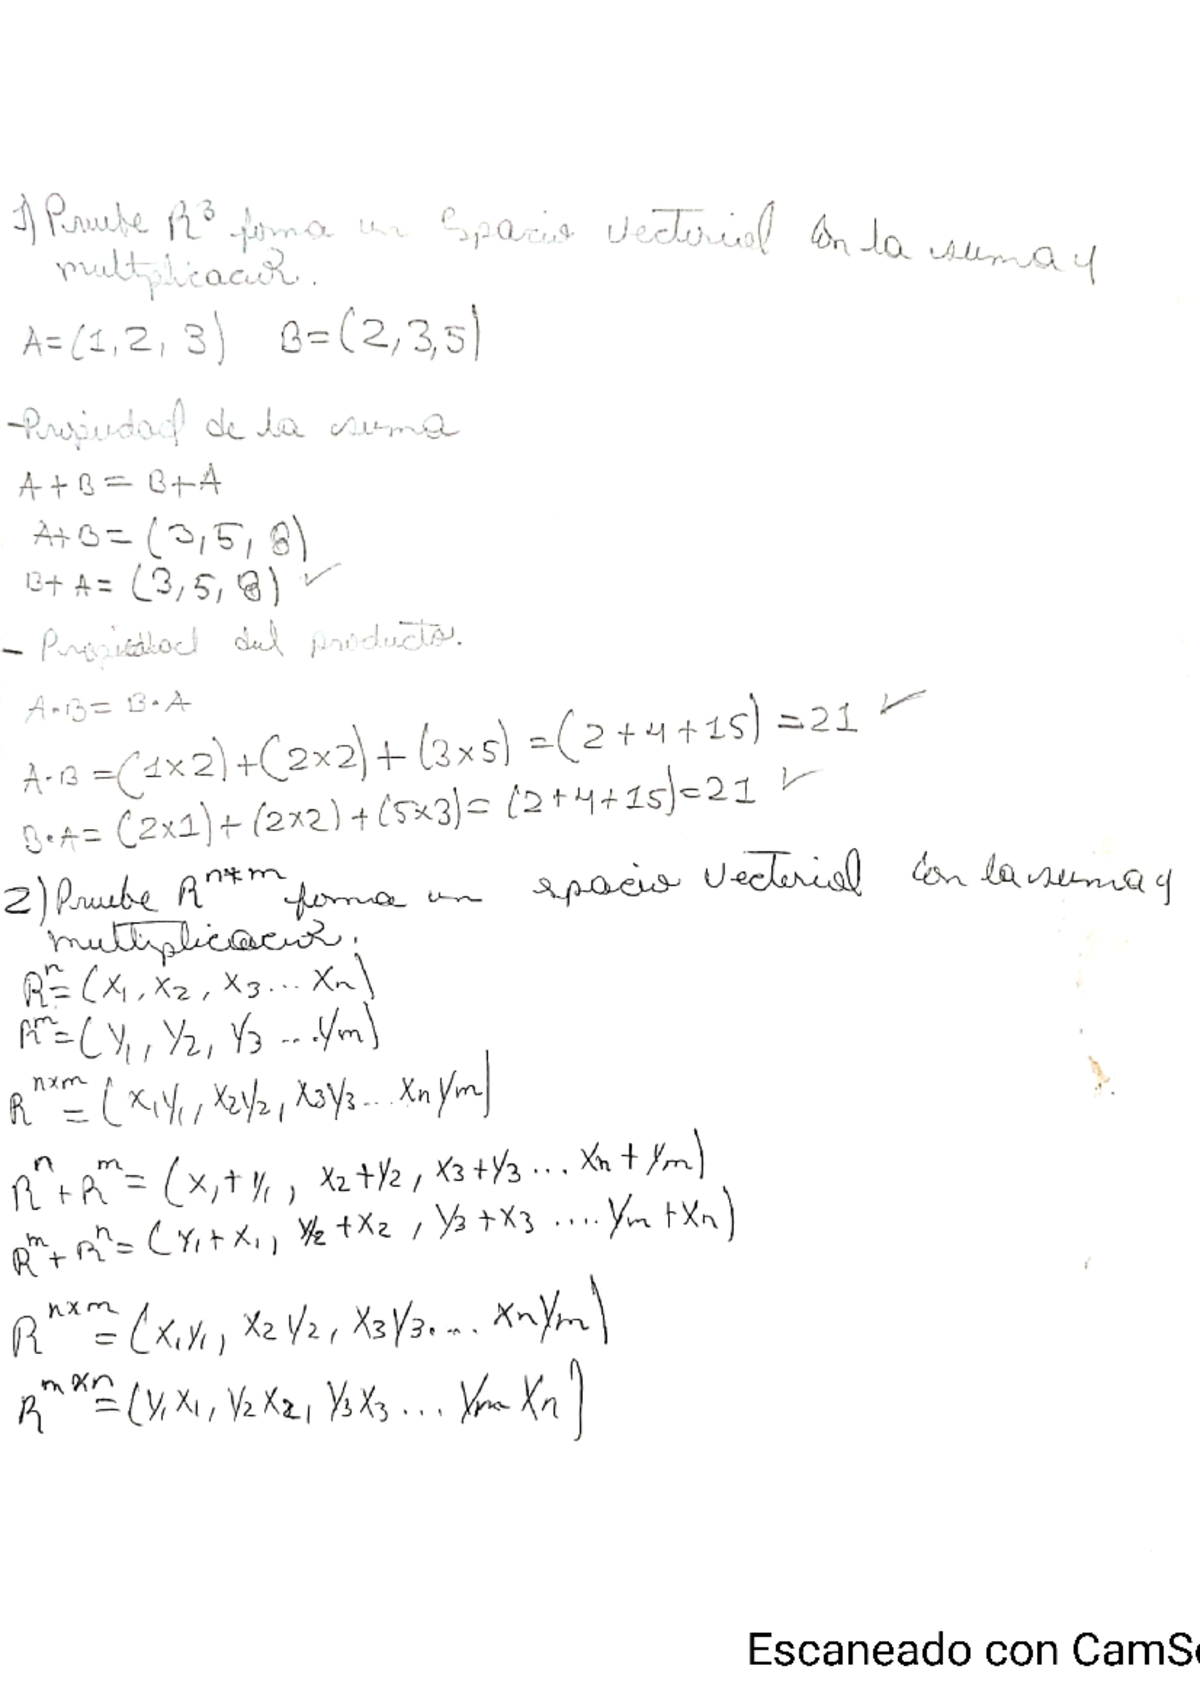 1) Pruebe R³ forma un Espacio Vectorial con la suma y
multiplicación.
A=(1,2,3) B=(2,3,5)
-Propiedad de la suma
A+B = B+A
A+B = (3,5,8)
B+A = (3,5,8) ✓
- Propiedad del producto.
A·B = B·A
A·B = (1x2)+(2x2)+(3x5) = (2+4+15) = 21 ✓
B·A = (2x1)+(2x2)+(5x3) = (2+4+15) = 21 ✓
2) Pruebe Rⁿ*ᵐ forma un espacio Vectorial con la suma y
multiplicación.
Rⁿ = (x₁, x₂, x₃... xₙ)
Rᵐ = (y₁, y₂, y₃ ... yₘ)
Rⁿˣᵐ = (x₁y₁, x₂y₂, x₃y₃... xₙyₘ)
Rⁿ+Rᵐ = (x₁+y₁, x₂+y₂, x₃+y₃... xₙ+yₘ)
Rᵐ+Rⁿ = (y₁+x₁, y₂+x₂, y₃+x₃ .... yₘ+xₙ)
Rⁿˣᵐ = (x₁y₁, x₂y₂, x₃y₃.... xₙyₘ)
Rᵐˣⁿ = (y₁x₁, y₂x₂, y₃x₃... yₘxₙ)
Escaneado con CamSc